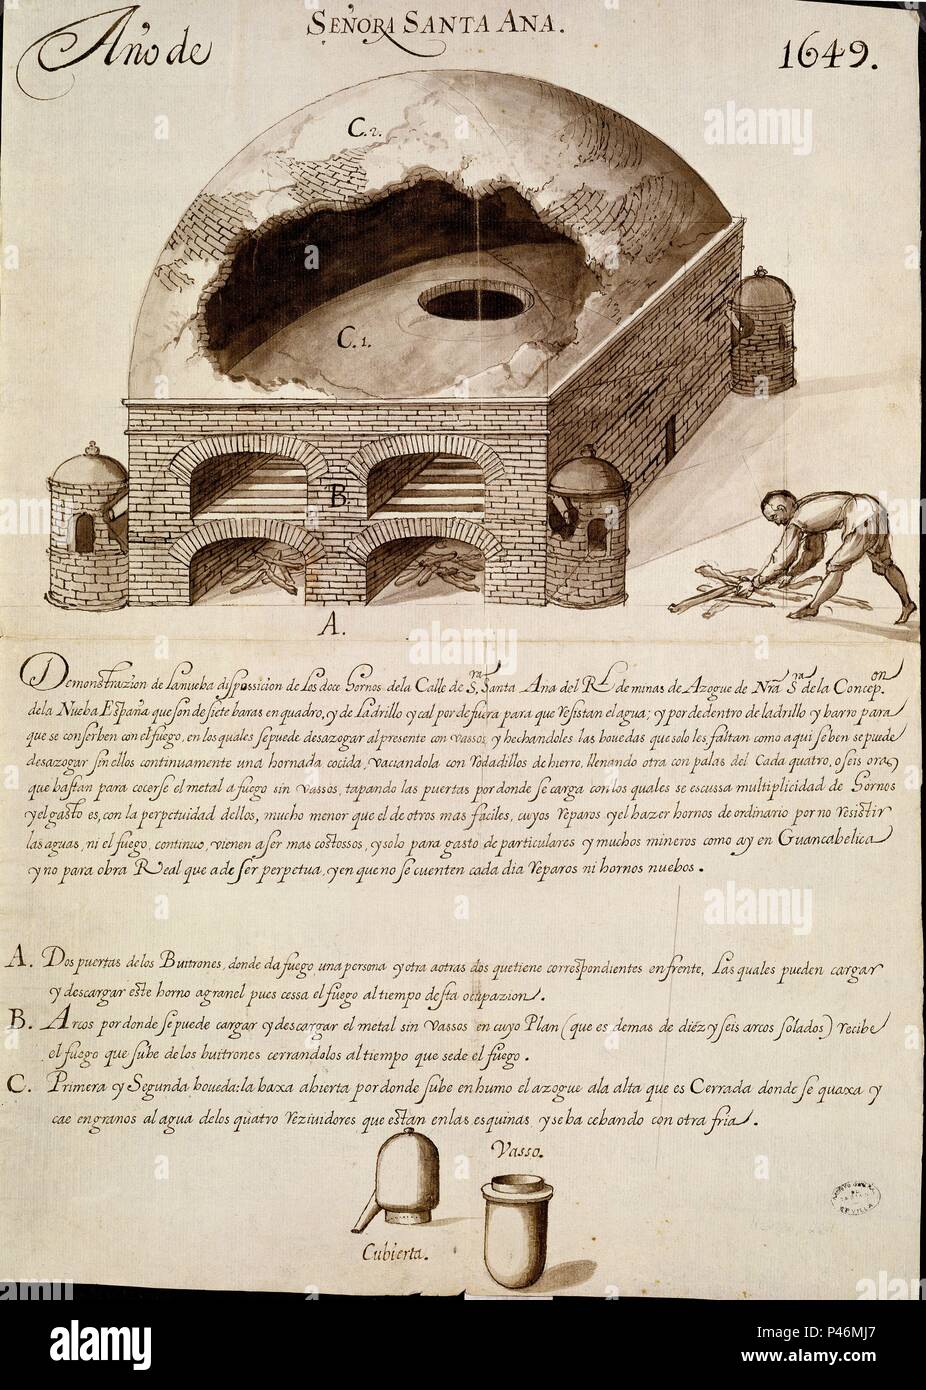 Año de
SEÑORA SANTA ANA.
1649.
C.2.
C.1.
B.
A.
Demonstrazion de la nueba disposicion de los doce Hornos de la Calle de S.ra Santa Ana del R.l de minas de Azogue de Nra S.ra de la Concep.on
de la Nueba España que son de siete baras en quadro, y de Ladrillo y cal por de fuera para que resistan el agua; y por de dentro de ladrillo y barro para
que se conserben con el fuego, en los quales se puede desazogar al presente con vassos, y hechandoles las bouedas que solo les faltan como aqui se ben se puede
desazogar sin ellos continuamente una hornada cocida, vaciandola con rodadillos de hierro, llenando otra con palas del Cada quatro, o seis oras
que bastan para cocerse el metal a fuego sin vassos, tapando las puertas por donde se carga con los quales se escussa multiplicidad de Hornos
y el gasto es, con la perpetuidad dellos, mucho menor que el de otros mas faciles, cuyos reparos y el hazer hornos de ordinario por no resistir
las aguas, ni el fuego, continuo, vienen a ser mas costossos, y solo para gasto de particulares y muchos mineros como ay en Guancabelica
y no para obra Real que a de ser perpetua, y en que no se cuenten cada dia reparos ni hornos nuebos.
A. Dos puertas de los Buitrones, donde da fuego una persona y otra a otras dos que tiene correspondientes en frente, Las quales pueden cargar
y descargar este horno a granel pues cessa el fuego al tiempo desta ocupazion.
B. Arcos por donde se puede cargar y descargar el metal sin vassos en cuyo Plan (que es demas de diéz y seis arcos solados) recibe
el fuego que sube de los buitrones cerrandolos al tiempo que se de el fuego.
C. Primera y Segunda boueda: la baxa abierta por donde sube en humo el azogue a la alta que es Cerrada donde se quaxa y
cae en granos al agua de los quatro reziuidores que estan en las esquinas y se ba cebando con otra fria.
Vasso.
Cubierta.
SEVILLA
alamy
a
alamy
Image ID: P46MJ7
www.alamy.com